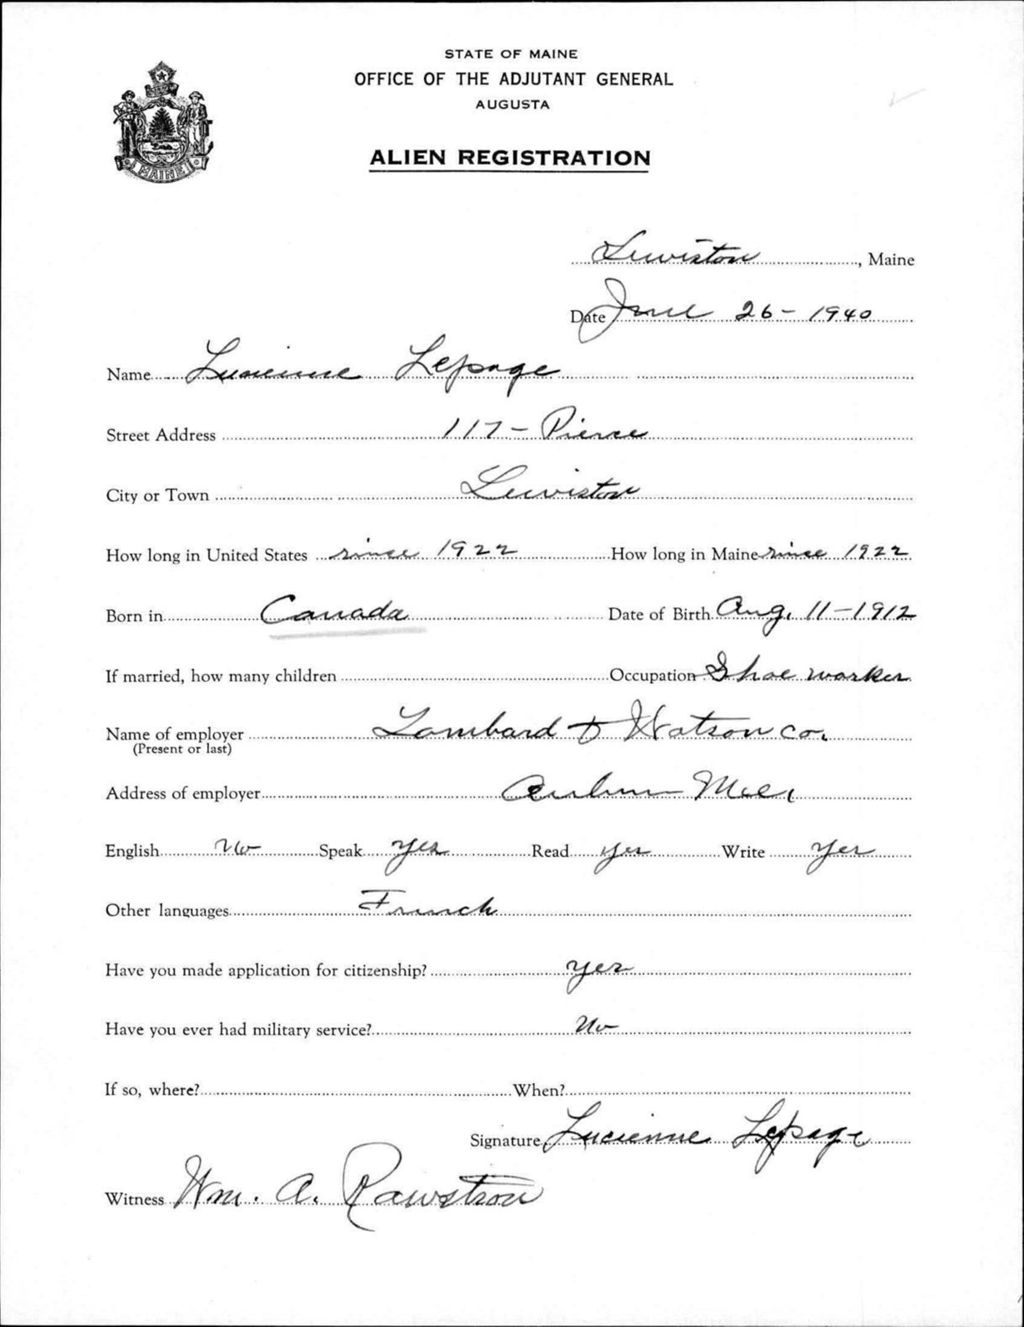 STATE OF MAINE
OFFICE OF THE ADJUTANT GENERAL
AUGUSTA
ALIEN REGISTRATION
MAINE
Lewiston, Maine
Date June 26-1940
Name Lucienne Lepage
Street Address 117 - Pierce
City or Town Lewiston
How long in United States since 1922 How long in Maine since 1922
Born in Canada Date of Birth Aug. 11-1912
If married, how many children Occupation Shoe worker
Name of employer Lombard & Watson Co.
(Present or last)
Address of employer Auburn Me.
English No Speak yes Read yes Write yes
Other languages French
Have you made application for citizenship? yes
Have you ever had military service? No
If so, where? When?
Signature Lucienne Lepage
Witness Wm. A. Rawstron